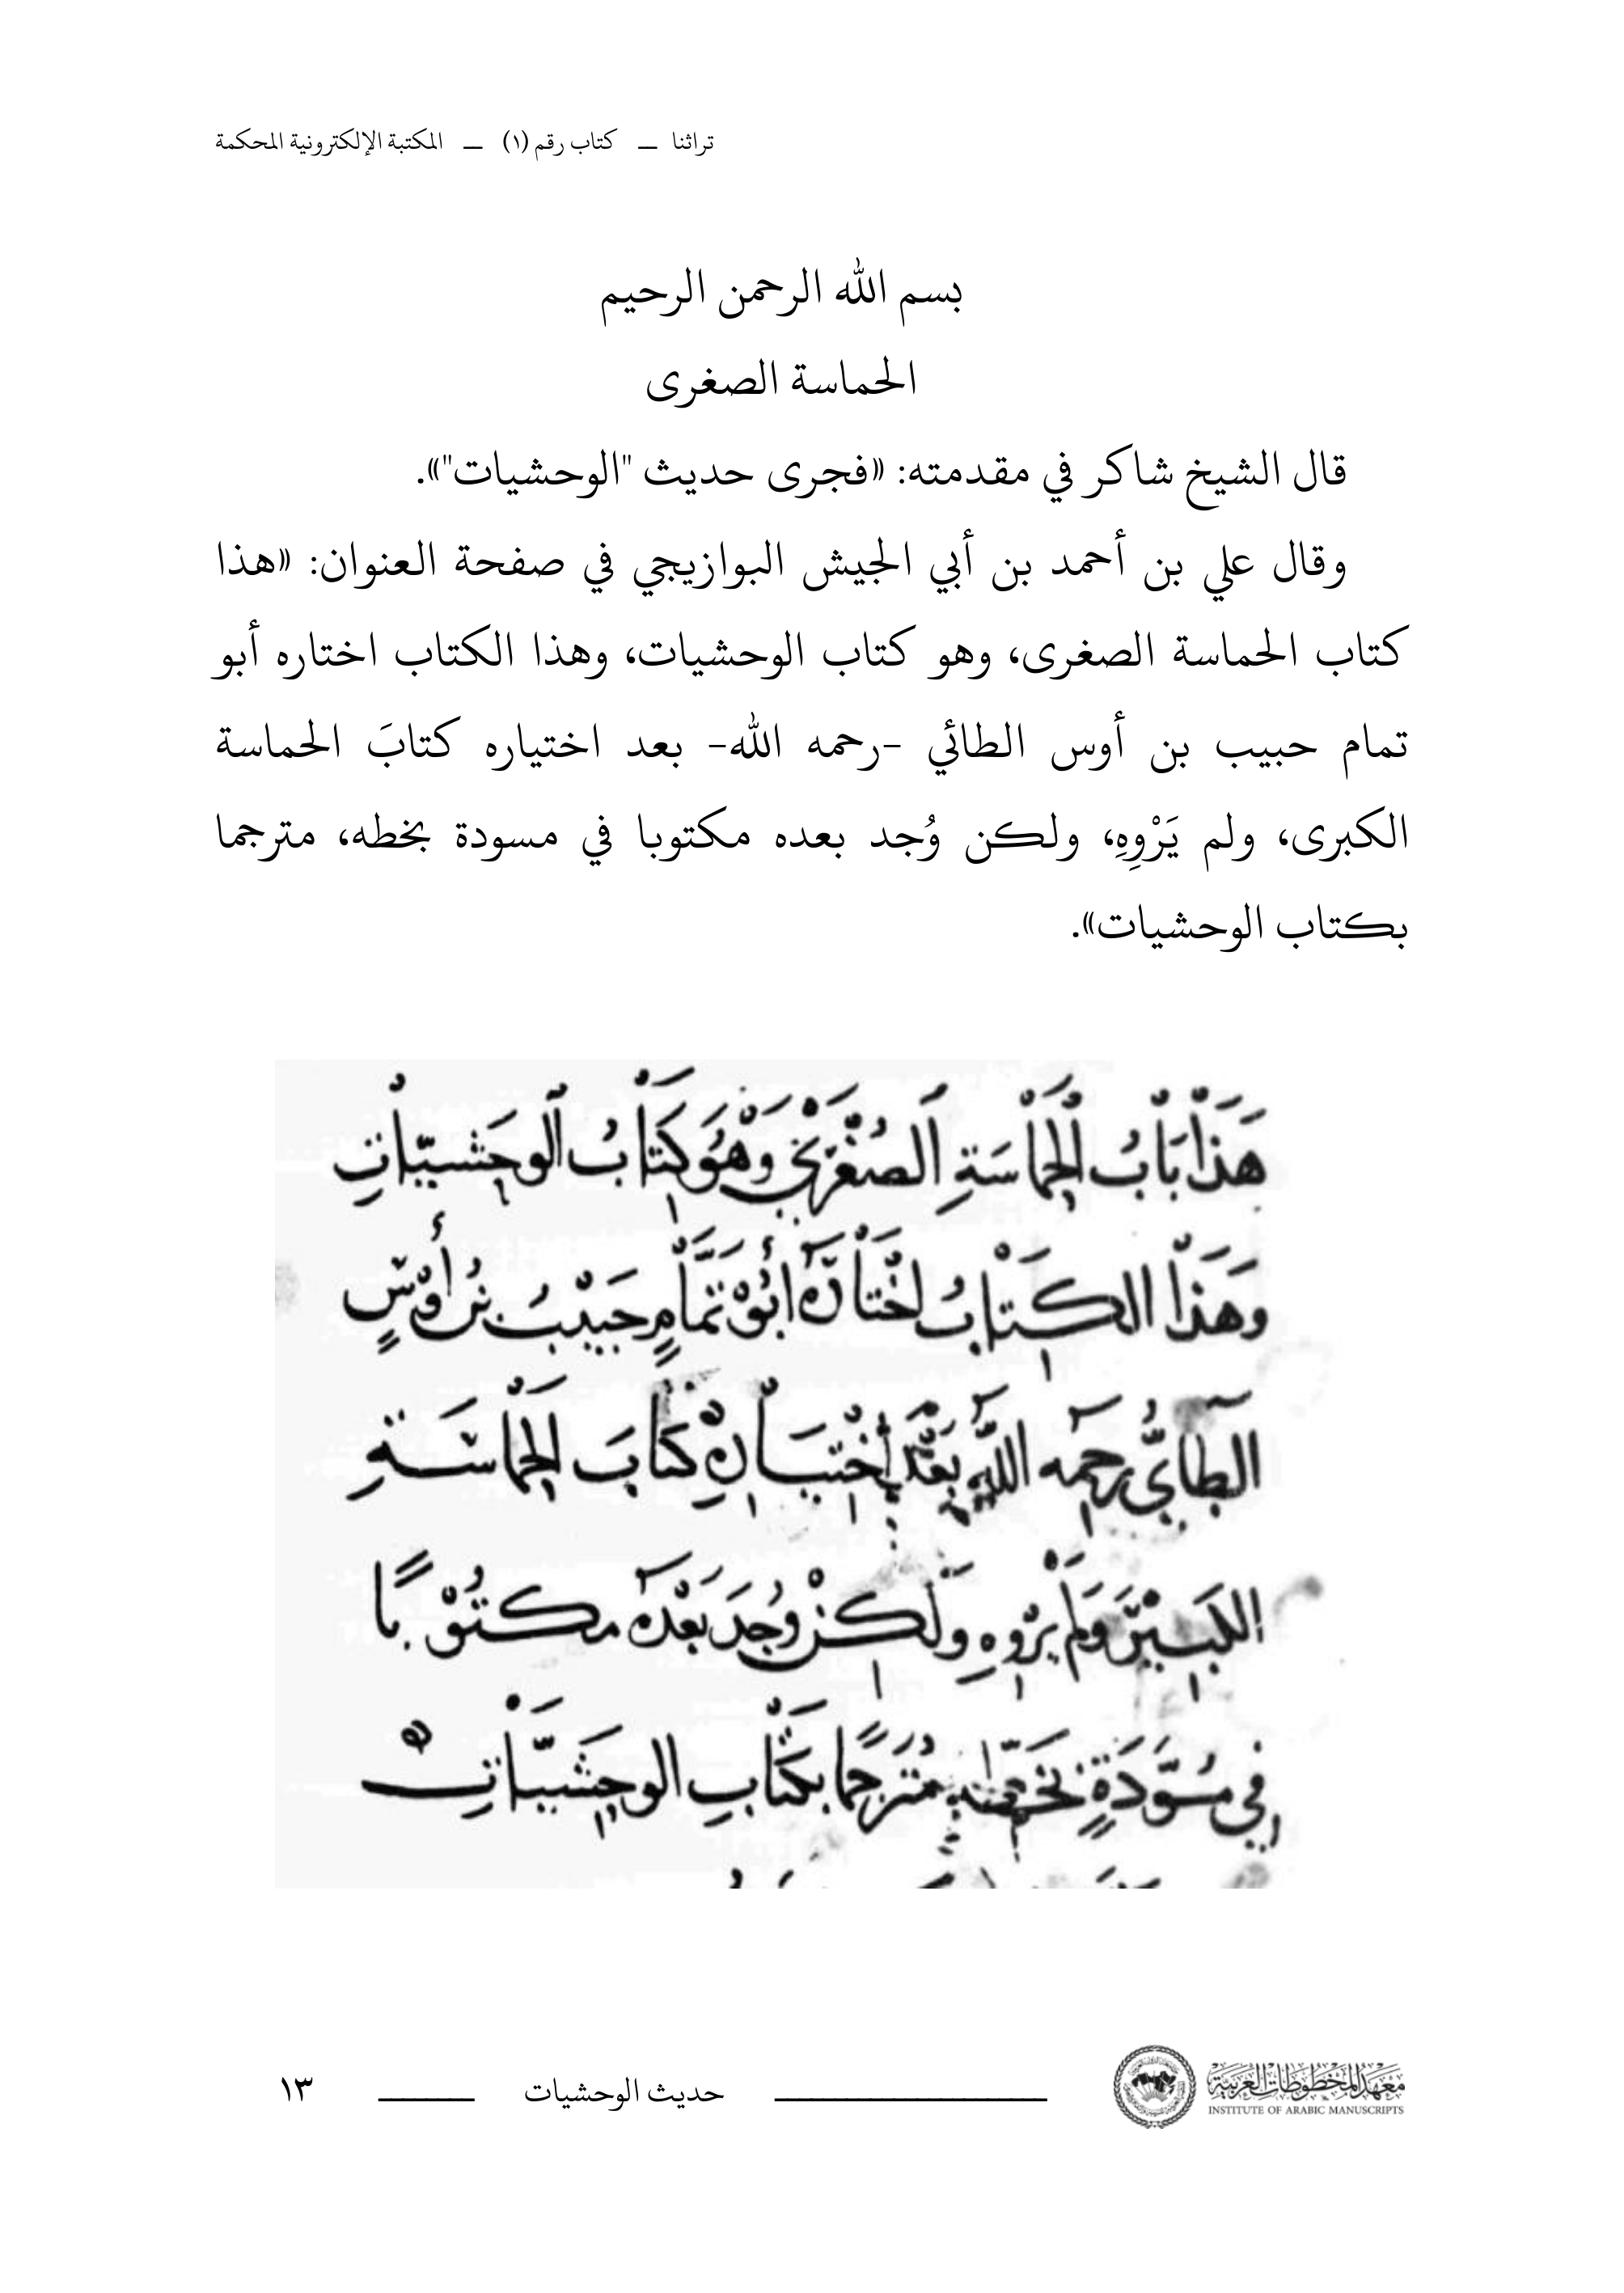 تراثنا — كتاب رقم (١) — المكتبة الإلكترونية المحكمة
بسم الله الرحمن الرحيم
الحماسة الصغرى
قال الشيخ شاكر في مقدمته: «فجرى حديث "الوحشيات"».
وقال علي بن أحمد بن أبي الجيش البوازيجي في صفحة العنوان: «هذا
كتاب الحماسة الصغرى، وهو كتاب الوحشيات، وهذا الكتاب اختاره أبو
تمام حبيب بن أوس الطائي -رحمه الله- بعد اختياره كتابَ الحماسة
الكبرى، ولم يَرْوِهِ، ولكن وُجد بعده مكتوبا في مسودة بخطه، مترجما
بكتاب الوحشيات».
هَذَا بَابُ الْحَمَاسَةِ الصُّغْرَى وَهُوَ كِتَابُ الْوَحْشِيَّاتِ
وَهَذَا الكِتَابُ اخْتَارَهُ أَبُوْ تَمَّامٍ حَبِيْبُ بْنُ أَوْسٍ
الطَّائِيُّ رَحِمَهُ اللَّهُ بَعْدَ اخْتِيَارِهِ كِتَابَ الْحَمَاسَةِ
الكَبِيْرَ وَلَمْ يَرْوِهِ وَلَكِنْ وُجِدَ بَعْدَهُ مَكْتُوْبًا
فِي مُسَوَّدَةٍ بِخَطِّهِ مُتَرْجَمًا بِكِتَابِ الوَحْشِيَّاتِ
معهد المخطوطات العربية
INSTITUTE OF ARABIC MANUSCRIPTS
حديث الوحشيات
١٣